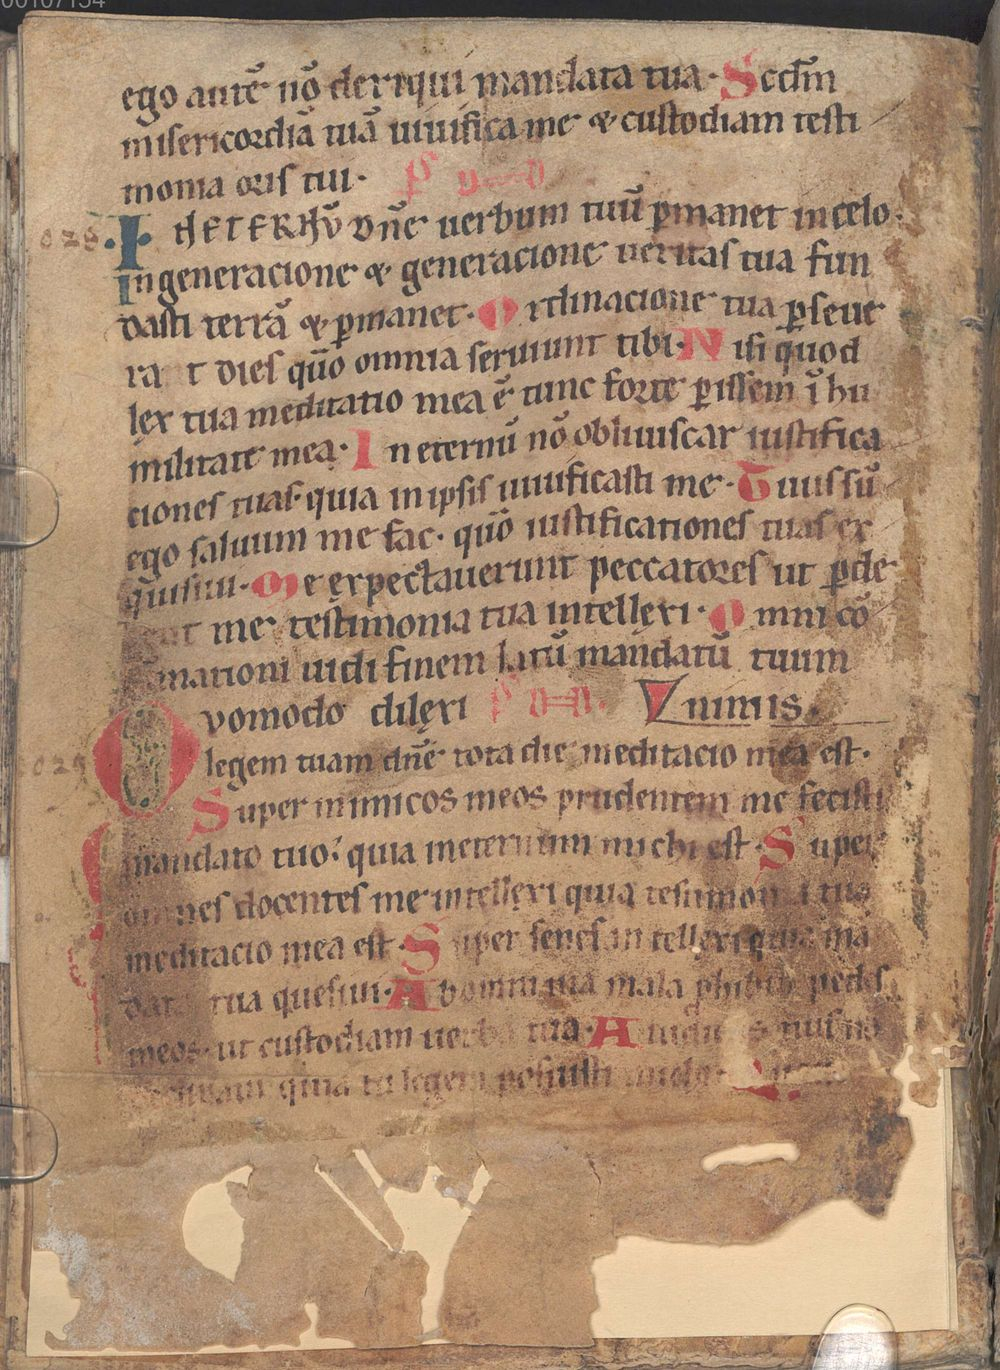 00107154
ego autē nō dereliqui mandata tua. Scdm̄
misericordiā tuā uiuifica me & custodiam testi
monia oris tui.
IN ETERNŪ dn̄e uerbum tuū ꝑmanet in celo.
in generacione & generacione ueritas tua fun
dasti terrā & ꝑmanet. Ordinacione tua ꝑseue
ra t dies qūo omnia seruiunt tibi. Nisi quod
lex tua meditatio mea ē tunc forte ꝑissem ī hu
militate mea. In eternū nō obliuiscar iustifica
ciones tuas. quia in ipsis uiuificasti me. Tuus sū
ego saluum me fac. qūo iustificationes tuas ex
quisiui. Me expectauerunt peccatores ut ꝑde
me testimonia tua intellexi. Omni cō
mationi uidi finem latū mandatū tuum
nimis.
Quomodo dilexi
legem tuam dn̄e tota die meditacio mea est.
Super inimicos meos prudentem me fecisti
mandato tuo. quia in eternum michi est. Super
omnes docentes me intellexi quia testimonia tua
meditacio mea est. Super senes intellexi quia mā
data tua quesiui. Ab omni uia mala ꝓhibui pedes
meos. ut custodiam uerba tua. A iudiciis tuis nō
quia tu legem posuisti michi.